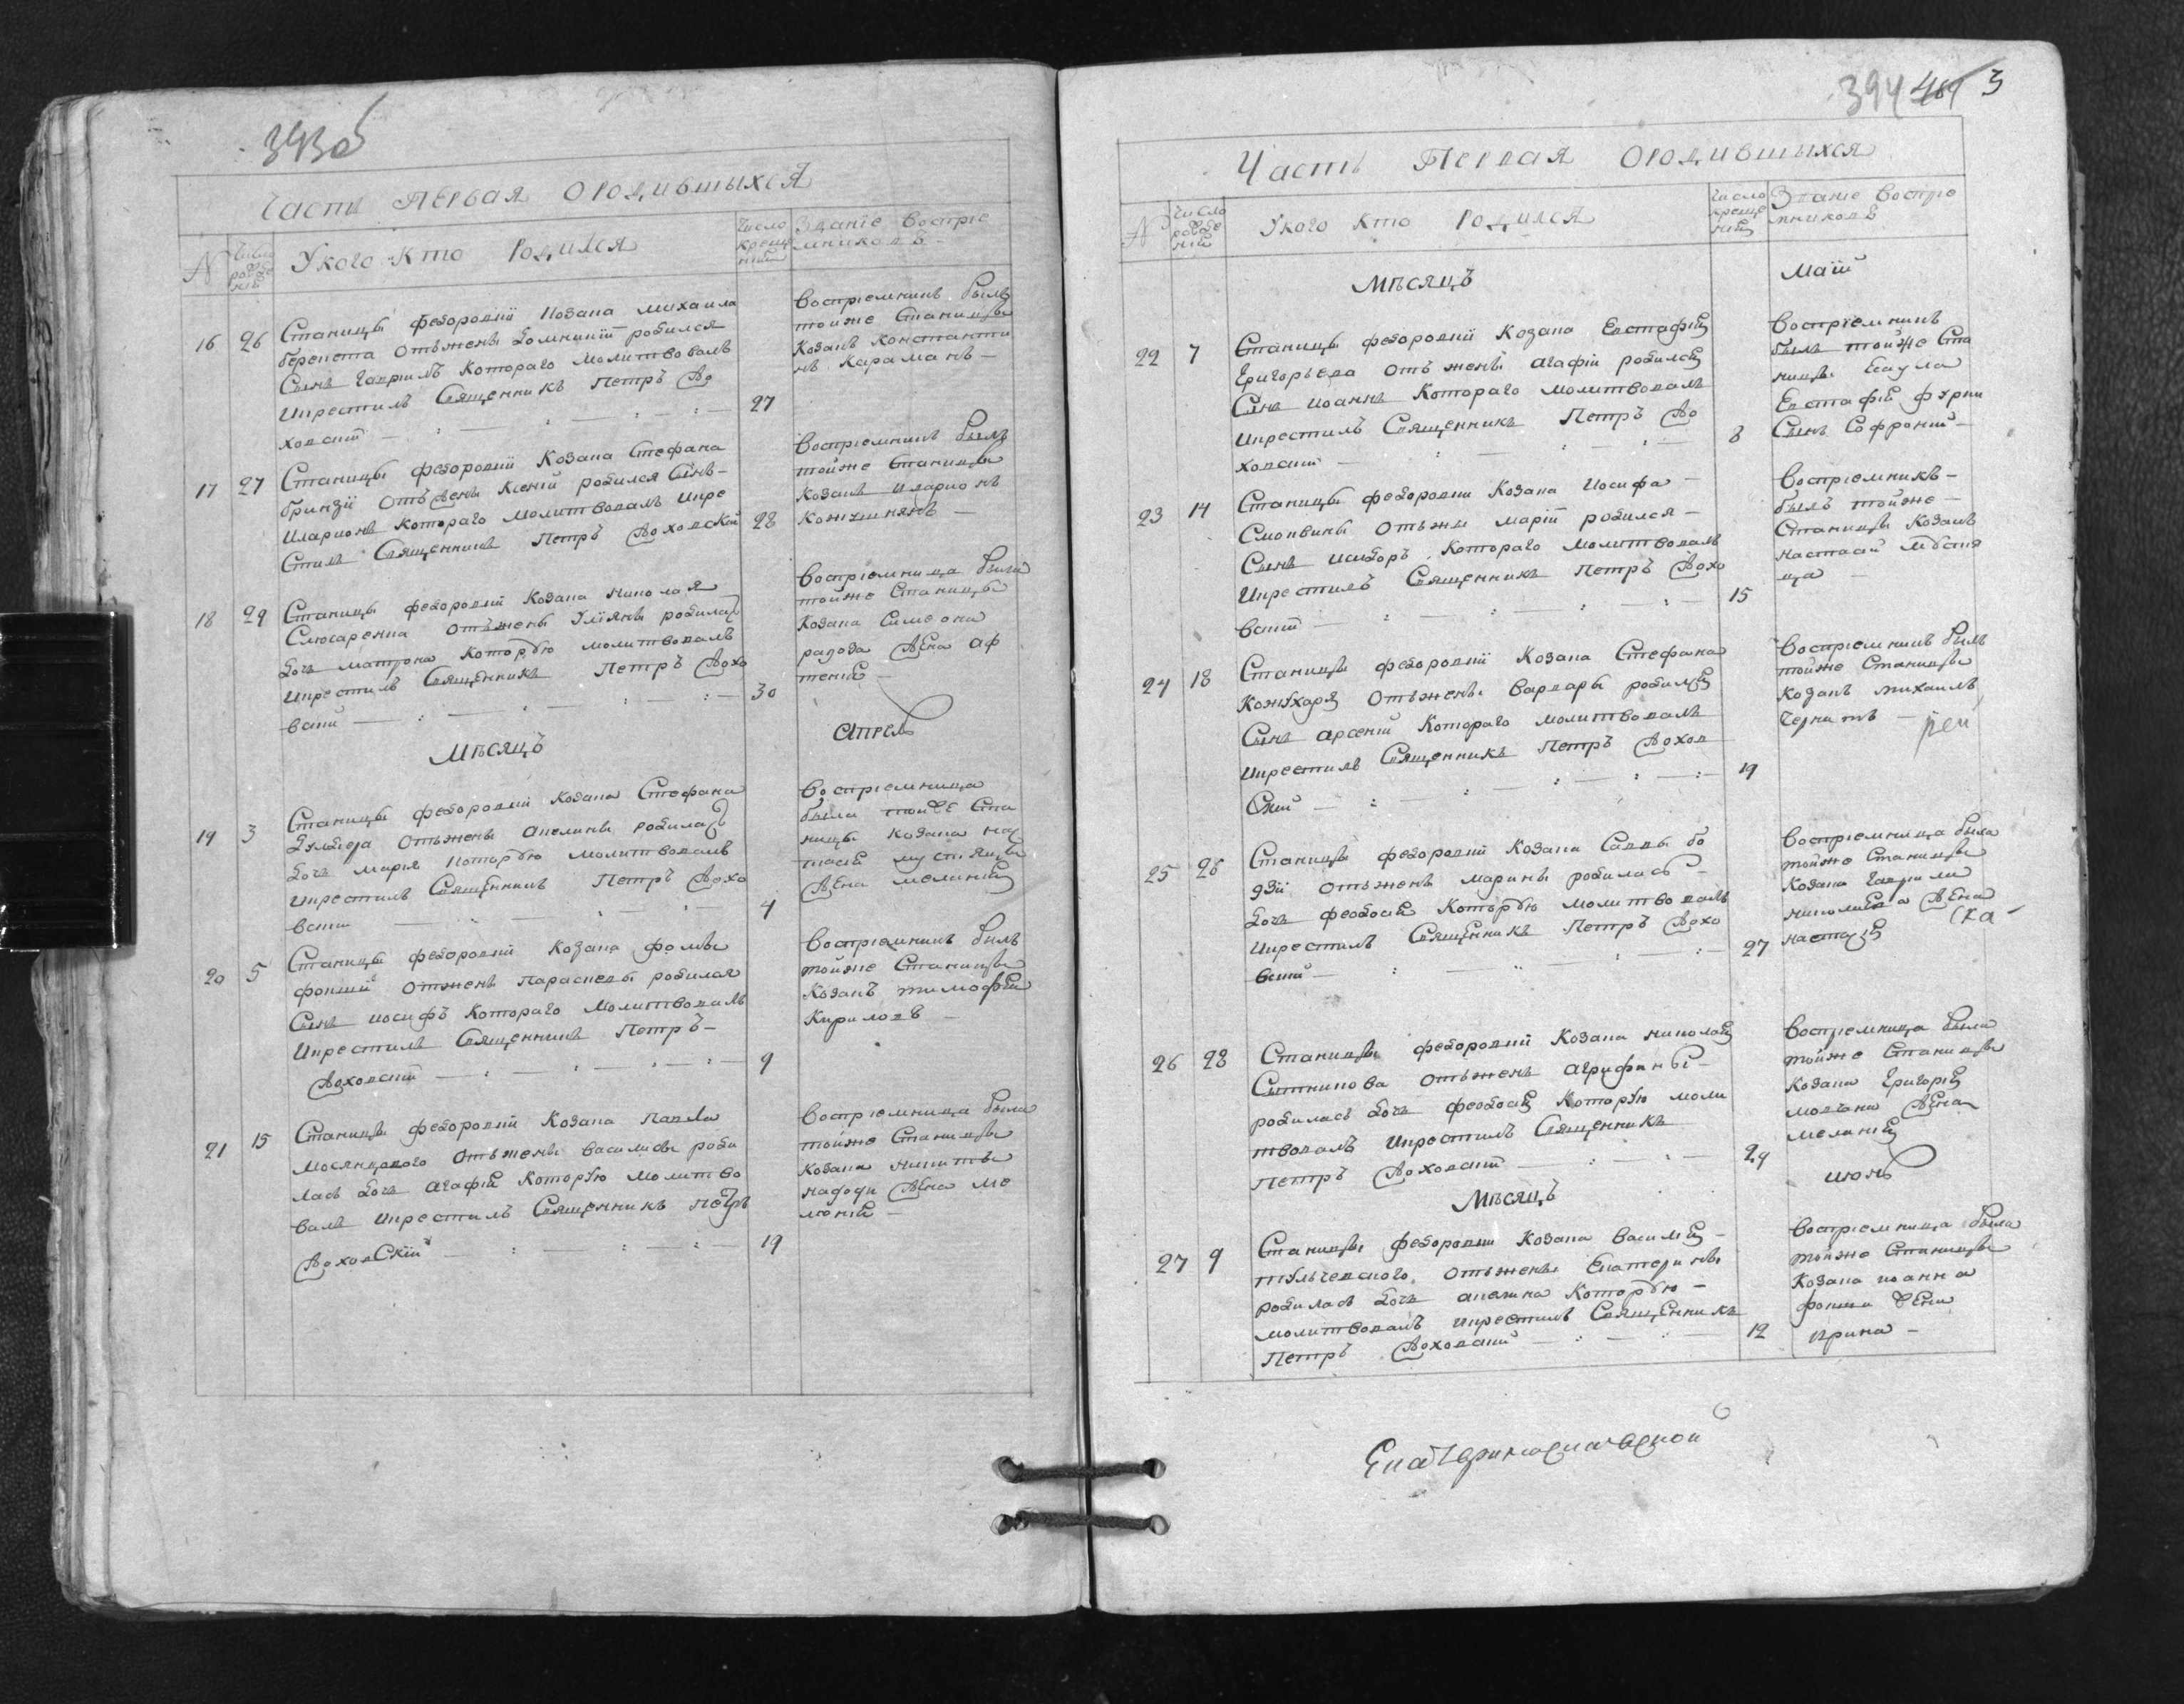 393об
Часть Первая Ородившыхся
N
Число рожде ній
Укого Кто Родился
Число креще ній
Званіе Воспріе мниковъ
16 26 Станицы Федоровки Козака Михаила
Отъжены Домникіи родился
Сынъ Гавріилъ Котораго Молитвовалъ
Икрестилъ Священникъ Петръ Во
ховскій 27
Воспріемникъ былъ
тойже Станицы
Козакъ Константи
нъ Караманъ
17 27 Станицы Федоровки Козака Стефана
Бринзіи Отъжены Ксеніи родился Сынъ
Иларионъ Котораго Молитвовалъ Икре
Стилъ Священникъ Петръ Воховскій 28
Воспріемникъ былъ
тойже Станицы
Козакъ Иларионъ
Кожушнянъ
18 29 Станицы Федоровки Козака Николая
Слюсаренка Отъжены Уліяны родилась
Дочь Матрона Которую молитвовалъ
Икрестилъ Священникъ Петръ Вохо
вскій 30
Воспріемница была
тойже Станицы
Козака Симеона
радова Жена Аф
тенія
Мѣсяцъ Апрель
19 3 Станицы Федоровки Козака Стефана
Отъжены Акелины родилась
Дочь Марія Которую молитвовалъ
Икрестилъ Священникъ Петръ Вохо
вскій 4
Воспріемница
была тойже Ста
ницы Козака На
тасія
Жена Меланія
20 5 Станицы Федоровки Козака Фомы
Фокши Отжены Параскевы родился
Сынъ Иосифъ Котораго Молитвовалъ
Икрестилъ Священникъ Петръ
Воховскій 9
Воспріемникъ былъ
тойже Станицы
Козакъ Тимофей
Кириловъ
21 15 Станицы Федоровки Козака Павла
Отъжены Василисы роди
лась Дочь Агафія Которую Молитво
валъ Икрестилъ Священникъ Петръ
ВоховСкій 19
Воспріемница была
тойже Станицы
Козака Никиты
Жена Ме
ланія
394 3
Часть Первая Ородившыхся
N
Число рожде ній
Укого Кто Родился
Число креще ній
Званіе Воспріе мниковъ
Мѣсяцъ Маій
22 7 Станицы Федоровки Козака Евстафія
Григорьева Отъ жены Агафіи родился
Сынъ Иоаннъ Котораго молитвовалъ
Икрестилъ Священникъ Петръ Во
ховскій 8
Воспріемникъ
былъ тойже Ста
ницы Есаула
Евстафія
Сынъ Софроній
23 14 Станицы Федоровки Козака Иосифа
Смоквины Отъжены Маріи родился
Сынъ Исидоръ Котораго Молитвовалъ
Икрестилъ Священникъ Петръ Вохо
вскій 15
Воспріемникъ
былъ тойже
Станицы Козакъ
24 18 Станицы Федоровки Козака Стефана
Кожухаря Отъжены Варвары родился
Сынъ Арсеній Котораго молитвовалъ
Икрестилъ Священникъ Петръ Вохов
Скій 19
Воспріемникъ былъ
тойже Станицы
Козакъ Михаилъ
25 26 Станицы Федоровки Козака Саввы Бо
дзи Отъжены Марины родилась
Дочь Феодосія Которую молитвовалъ
Икрестилъ Священникъ Петръ Вохо
вскій 27
Воспріемница была
тойже Станицы
Козака Гаврила
Жена
Настасія
26 28 Станицы Федоровки Козака Николая
Сытникова Отъжены Агрифины
родилась Дочь Феодосія Которую моли
твовалъ Икрестилъ Священникъ
Петръ Воховскій 29
Воспріемница была
тойже Станицы
Козака Григорія
Молчана Жена
Меланія
Мѣсяцъ Июнь
27 9 Станицы Федоровки Козака Василія
Тульчевского Отъжены Екатерины
родилась Дочь Акелина Которую
молитвовалъ Икрестилъ Священникъ
Петръ Воховскій 12
Воспріемница была
тойже Станицы
Козака Иоанна
Фокши Жена
Ирина
Екатеринославской